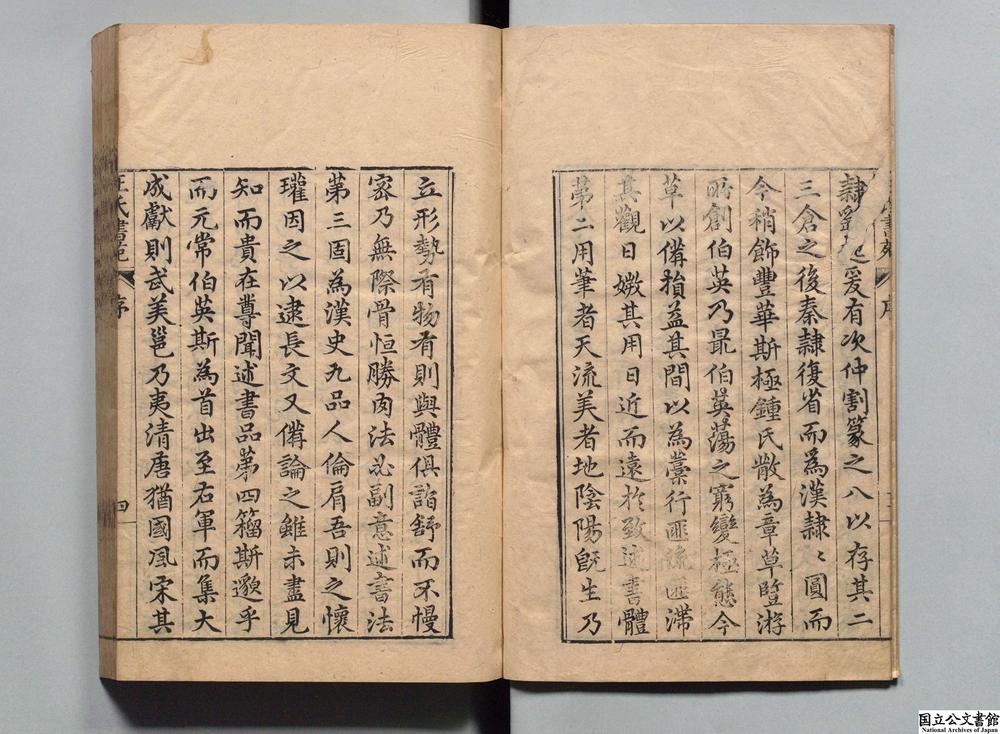 隷爰有次仲割篆之八以存其二
三倉之後秦隷復省而為漢隷〻圓而
今稍飾豐華斯極鍾氏㪚為章草暨游
所創伯英乃最伯英蕩之窮變極態今
草以備指益其間以為藁行匪流匪滯
其觀日媺其用日近而遠於致述書體
苐二用筆者天流美者地陰陽旣生乃
立形勢有物有則與體俱詣舒而不慢
宻乃無際骨恒勝肉法必副意述書法
苐三固為漢史九品人倫肩吾則之懷
瓘因之以逮長文又備論之雖未盡見
知而貴在尊聞述書品苐四籀斯邈乎
而元常伯英斯為首出至右軍而集大
成獻則武美邕乃夷清唐猶國風宋其
王氏書苑
序
四
国立公文書館
National Archives of Japan